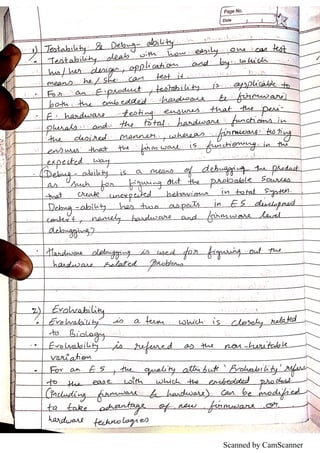 Page No.
Date
1) Testability & Debug-ability
• Testability deals with how easily one can test
his/her design, application and by which
means he/she can test it.
• For an E-product, testability is applicable to
both the embedded hardware & firmware
• E. hardware testing ensures that the peri-
pherals and the total hardware functions in
the desired manner, whereas firmware testing
ensures that the firmware is functioning in the
expected way
• (Debug-ability is a means of debugging the product
as such for figuring out the probable sources
that create unexpected behaviour in total system.
Debug-ability has two aspects in ES development
context, namely hardware and firmware level
debugging)
• Hardware debugging is used for figuring out the
hardware related problems
2) Evolvability
• Evolvability is a term which is closely related
to Biology
• Evolvability is referred as the non-heritable
variation
• For an ES, the quality attribute 'Evolvability' refers
to the ease with which the embedded product
(Including firmware & hardware) can be modified
to take advantage of new firmware or
hardware technologies
Scanned by CamScanner